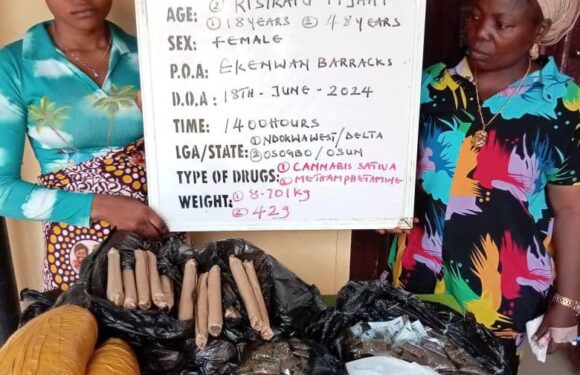 ② RISIKATU TIJANI
AGE: ① 18 YEARS ② 48 YEARS
SEX: FEMALE
P.O.A: EKENWAN BARRACKS
D.O.A: 18TH-JUNE-2024
TIME: 1400HOURS
① NDOKWAWEST/DELTA
LGA/STATE: ② OSOGBO/OSUN
TYPE OF DRUGS: ① CANNABIS SATIVA
② METHAMPHETAMINE
WEIGHT: ① 8.701kg
② 42g